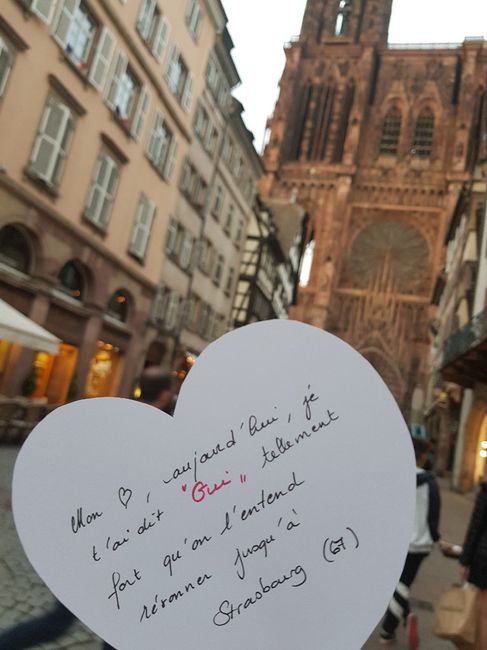 Mon ♡, aujourd'hui, je
t'ai dit "Oui" tellement
fort qu'on l'entend
résonner jusqu'à
Strasbourg (67)